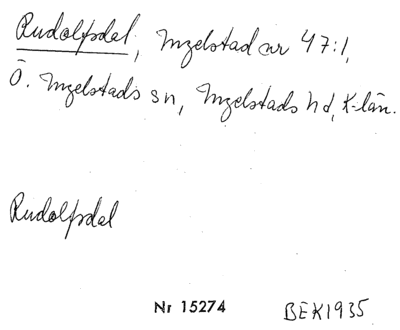 Rudolfsdal, Ingelstad nr 47:1,
Ö. Ingelstads sn, Ingelstads hd, K-län.
Rudolfsdal
Nr 15274 BEK1935